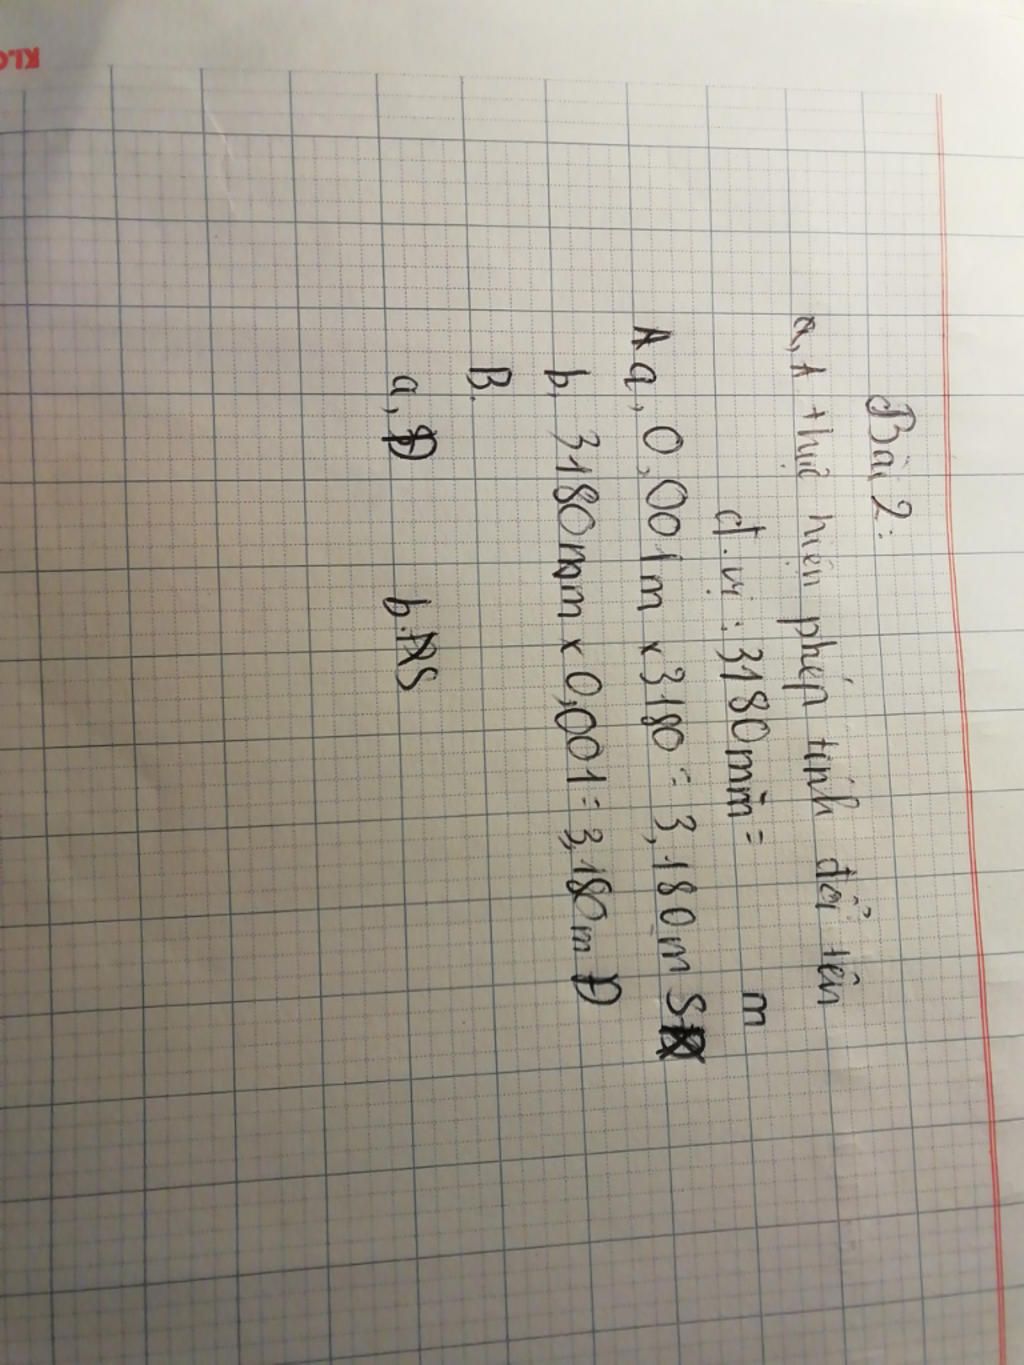 Bài 2:
a, A thực hiện phép tính đổi tên
đ.vị : 3180mm = m
A a, 0,001m x 3180 = 3,180m S
b, 3180mm x 0,001 = 3,180m Đ
B.
a, Đ b. S